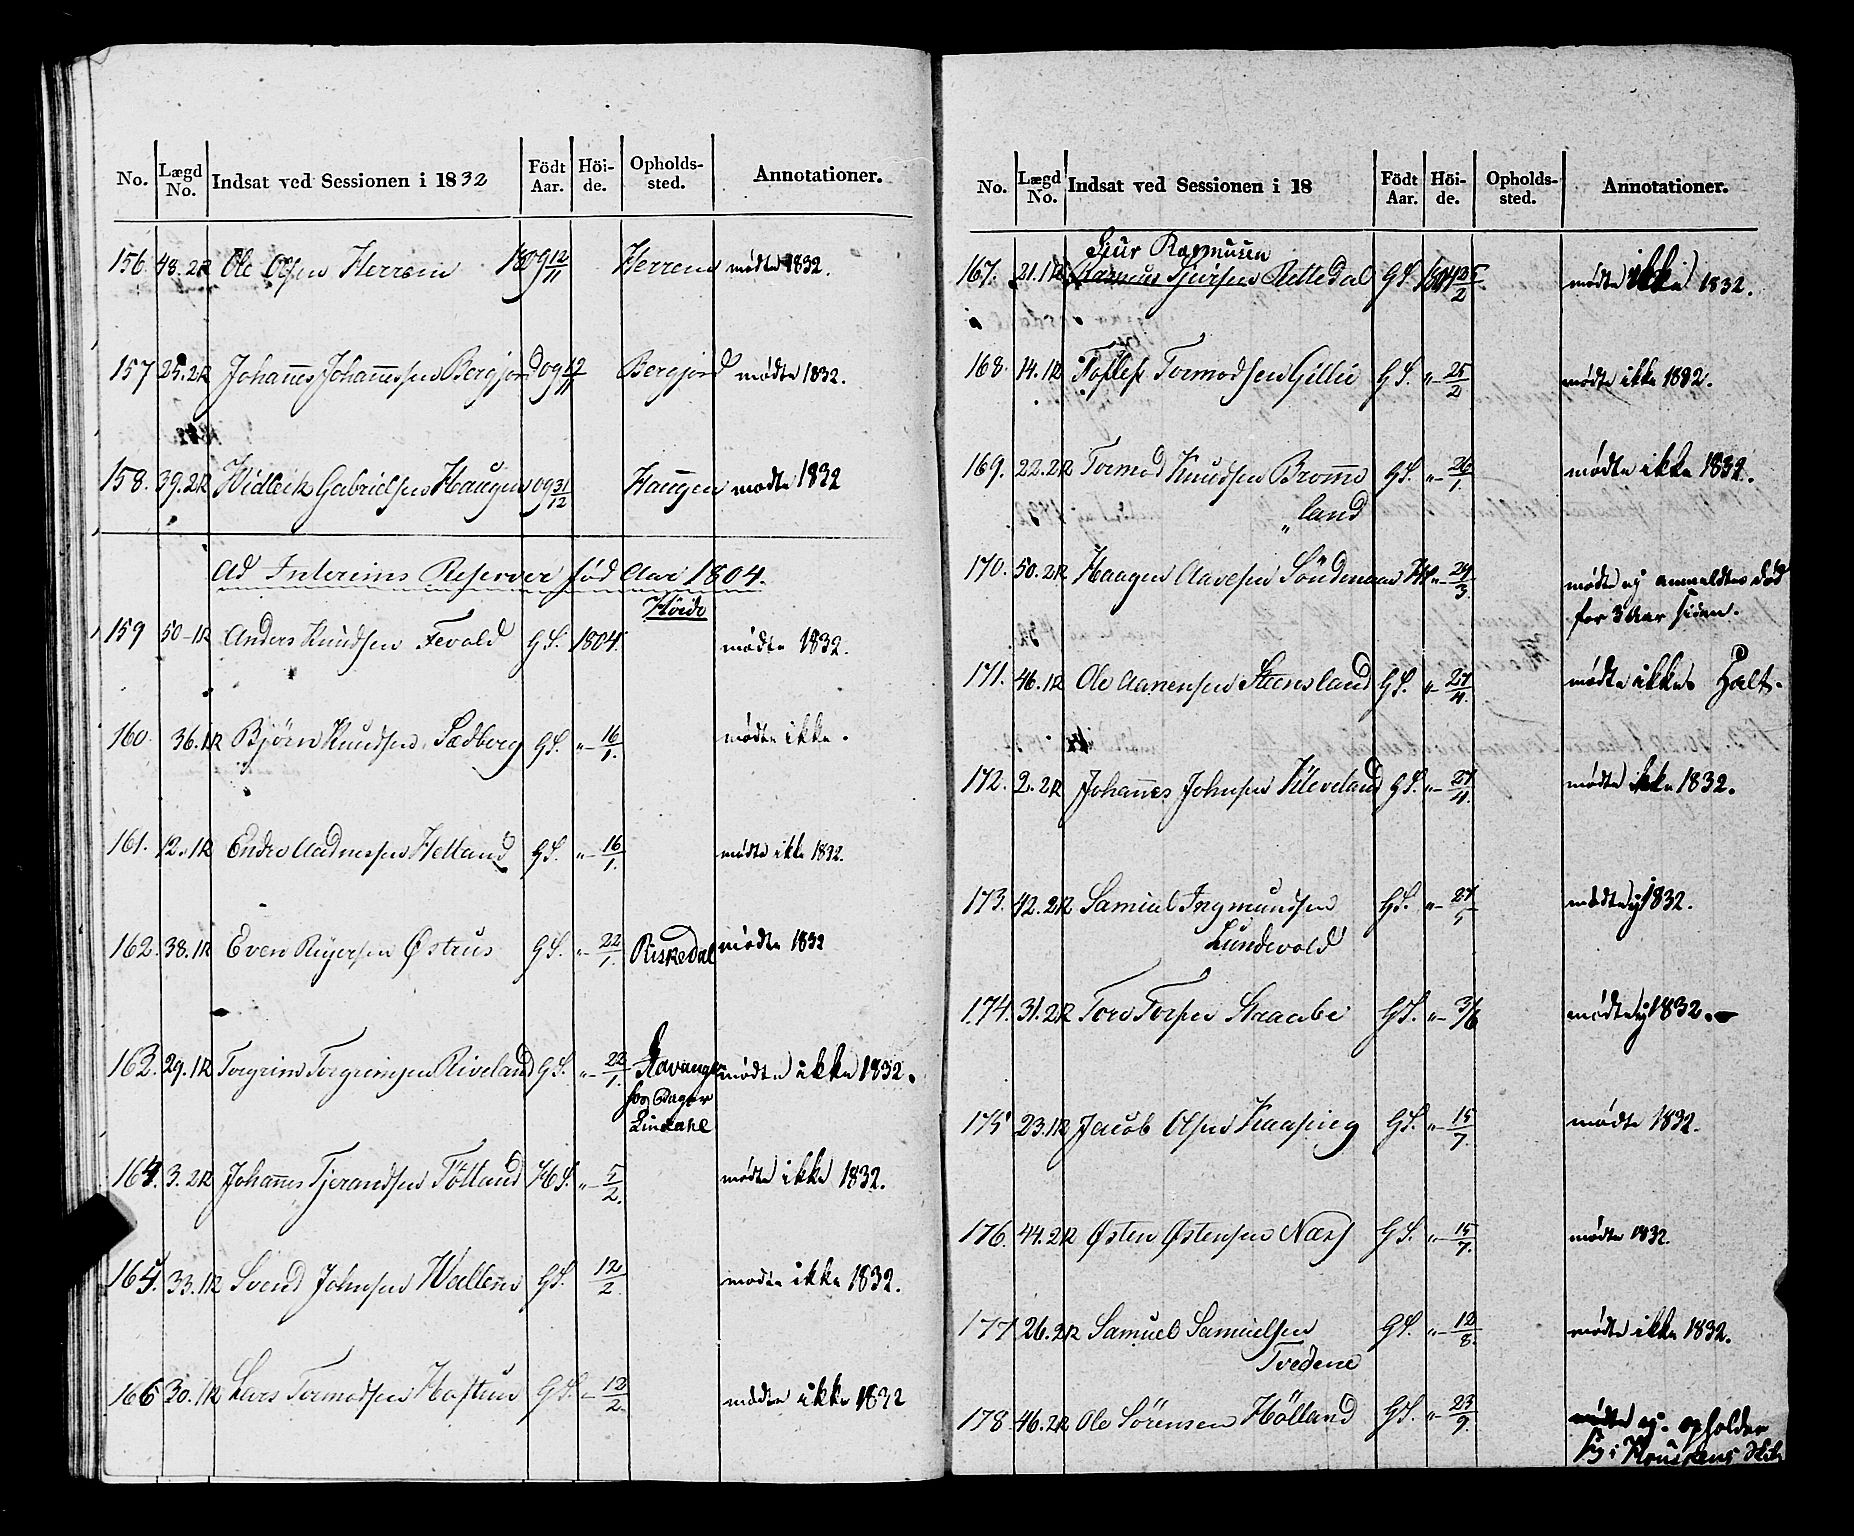 No. Lægd No. Indsat ved Sessionen i 1832 Födt Aar. Höide. Opholdssted. Annotationer.
156. 48. 2R Ole Olsen Herrem 1809 12/11 Herrem mødte 1832.
157 25. 2R Johannes Johannessen Bergjord 09 12/11 Bergjord mødte 1832.
158. 39. 2R Widlech Gabrielsen Haugen 09 31/12 Haugen mødte 1832
Ad Interims Reserver fød Aar 1804.
159 50-1R Anders Knudsen Tevold GS. 1804. Høide mødte 1832.
160. 36. 1R Bjørn Knudsen Sædberg GS. „ 16/1. mødte ikke.
161. 12. 1R Endre Aadnesen Helland GS. „ 16/1. mødte ikke 1832.
162. 38. 1R Even Reyersen Østrus GS. „ 22/1. Riskedal mødte 1832
163. 29. 1R Torgrim Torgrimsen Riveland GS. „ 22/1. Stavanger mødte ikke 1832.
hos Bager
Lindahl
164. 3. 2R Johannes Tjerandsen Tötland HS. „ 5/2. mødte ikke 1832.
165. 33. 1R Svend Johnsen Wallem GS. 12/2. mødte ikke 1832.
166 30. 1R Lars Tormodsen Haftun GS. 12/2. mødte ikke 1832
No. Lægd No. Indsat ved Sessionen i 18 Födt Aar. Höide. Opholdssted. Annotationer.
Sjur Rasmusen
167. 21. 1R Rasmus Sjursen Rettedal GS. 1804 25/2. mødte ikke 1832.
168. 14. 1R Tollef Tormodsen Gillie GS. „ 25/2 mødte ikke 1832.
169. 22. 2R Tormod Knudsen Bromme GS. „ 26/1. mødte ikke 1832.
„land
170. 50. 2R Haagen Aavesen Söndenaa „ 29/3. mødte ej anmeldtes død
for 3 Aar siden.
171. 46. 1R Ole Aanensen Steensland GS. „ 27/4. mødte ikke. Halt.
172. 2. 2R Johannes Johnsen Kleveland GS. „ 27/4. mødte ikke 1832.
173. 42. 2R Samuel Ingmundsen GS. „ 27/5 mødte ej 1832.
Lundevold
174. 31. 2R Tore Torsen Straabe GS. „ 3/6 mødte ej 1832.
175 23. 1R Jacob Olsen Kaasing GS. „ 15/7. mødte 1832.
176. 44. 2R Østen Østensen Næss GS. „ 15/7. mødte 1832
177 26. 2R Samuel Samuelsen GS. „ 12/8. mødte ikke 1832.
Tvedene
178. 46. 2R Ole Sörensen Hölland GS. „ 23/9. mødte ej. opholder
sig i